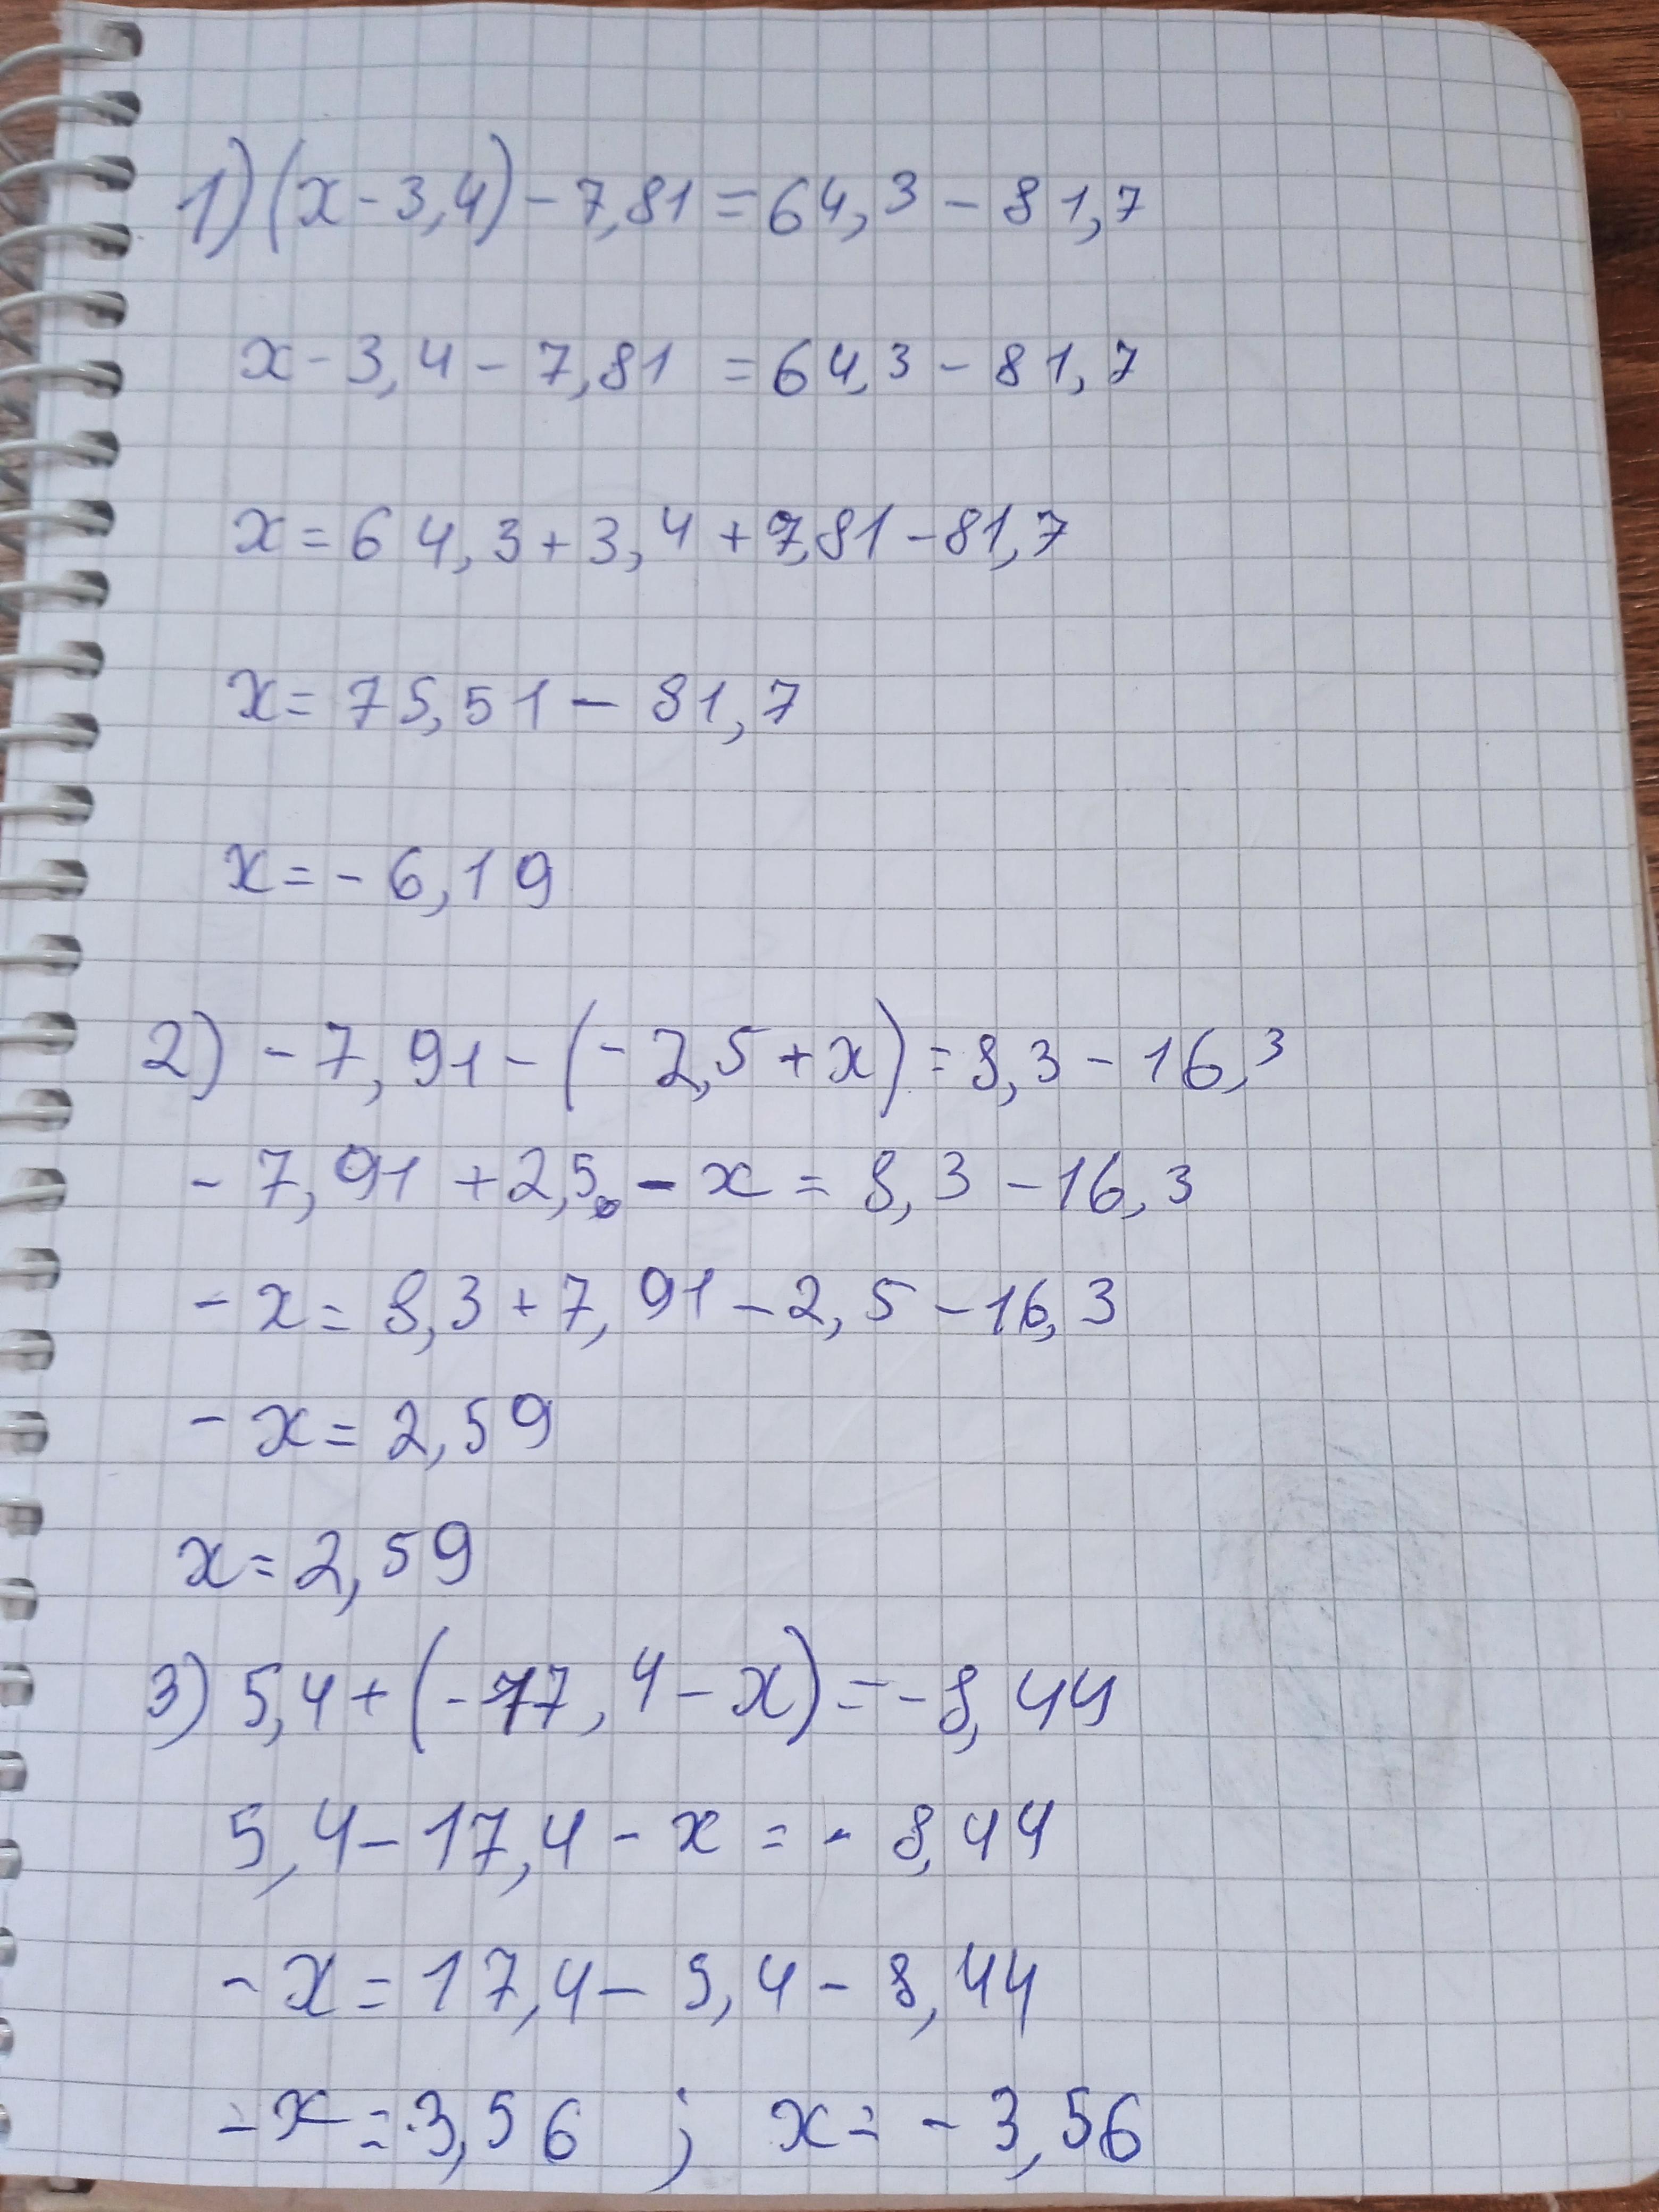 1) (x - 3,4) - 7,81 = 64,3 - 81,7
x - 3,4 - 7,81 = 64,3 - 81,7
x = 64,3 + 3,4 + 7,81 - 81,7
x = 75,51 - 81,7
x = - 6,19
2) - 7,91 - (- 2,5 + x) = 8,3 - 16,3
- 7,91 + 2,5 - x = 8,3 - 16,3
- x = 8,3 + 7,91 - 2,5 - 16,3
- x = 2,59
x = 2,59
3) 5,4 + (- 17,4 - x) = - 8,44
5,4 - 17,4 - x = - 8,44
- x = 17,4 - 5,4 - 8,44
- x = 3,56 ; x = - 3,56